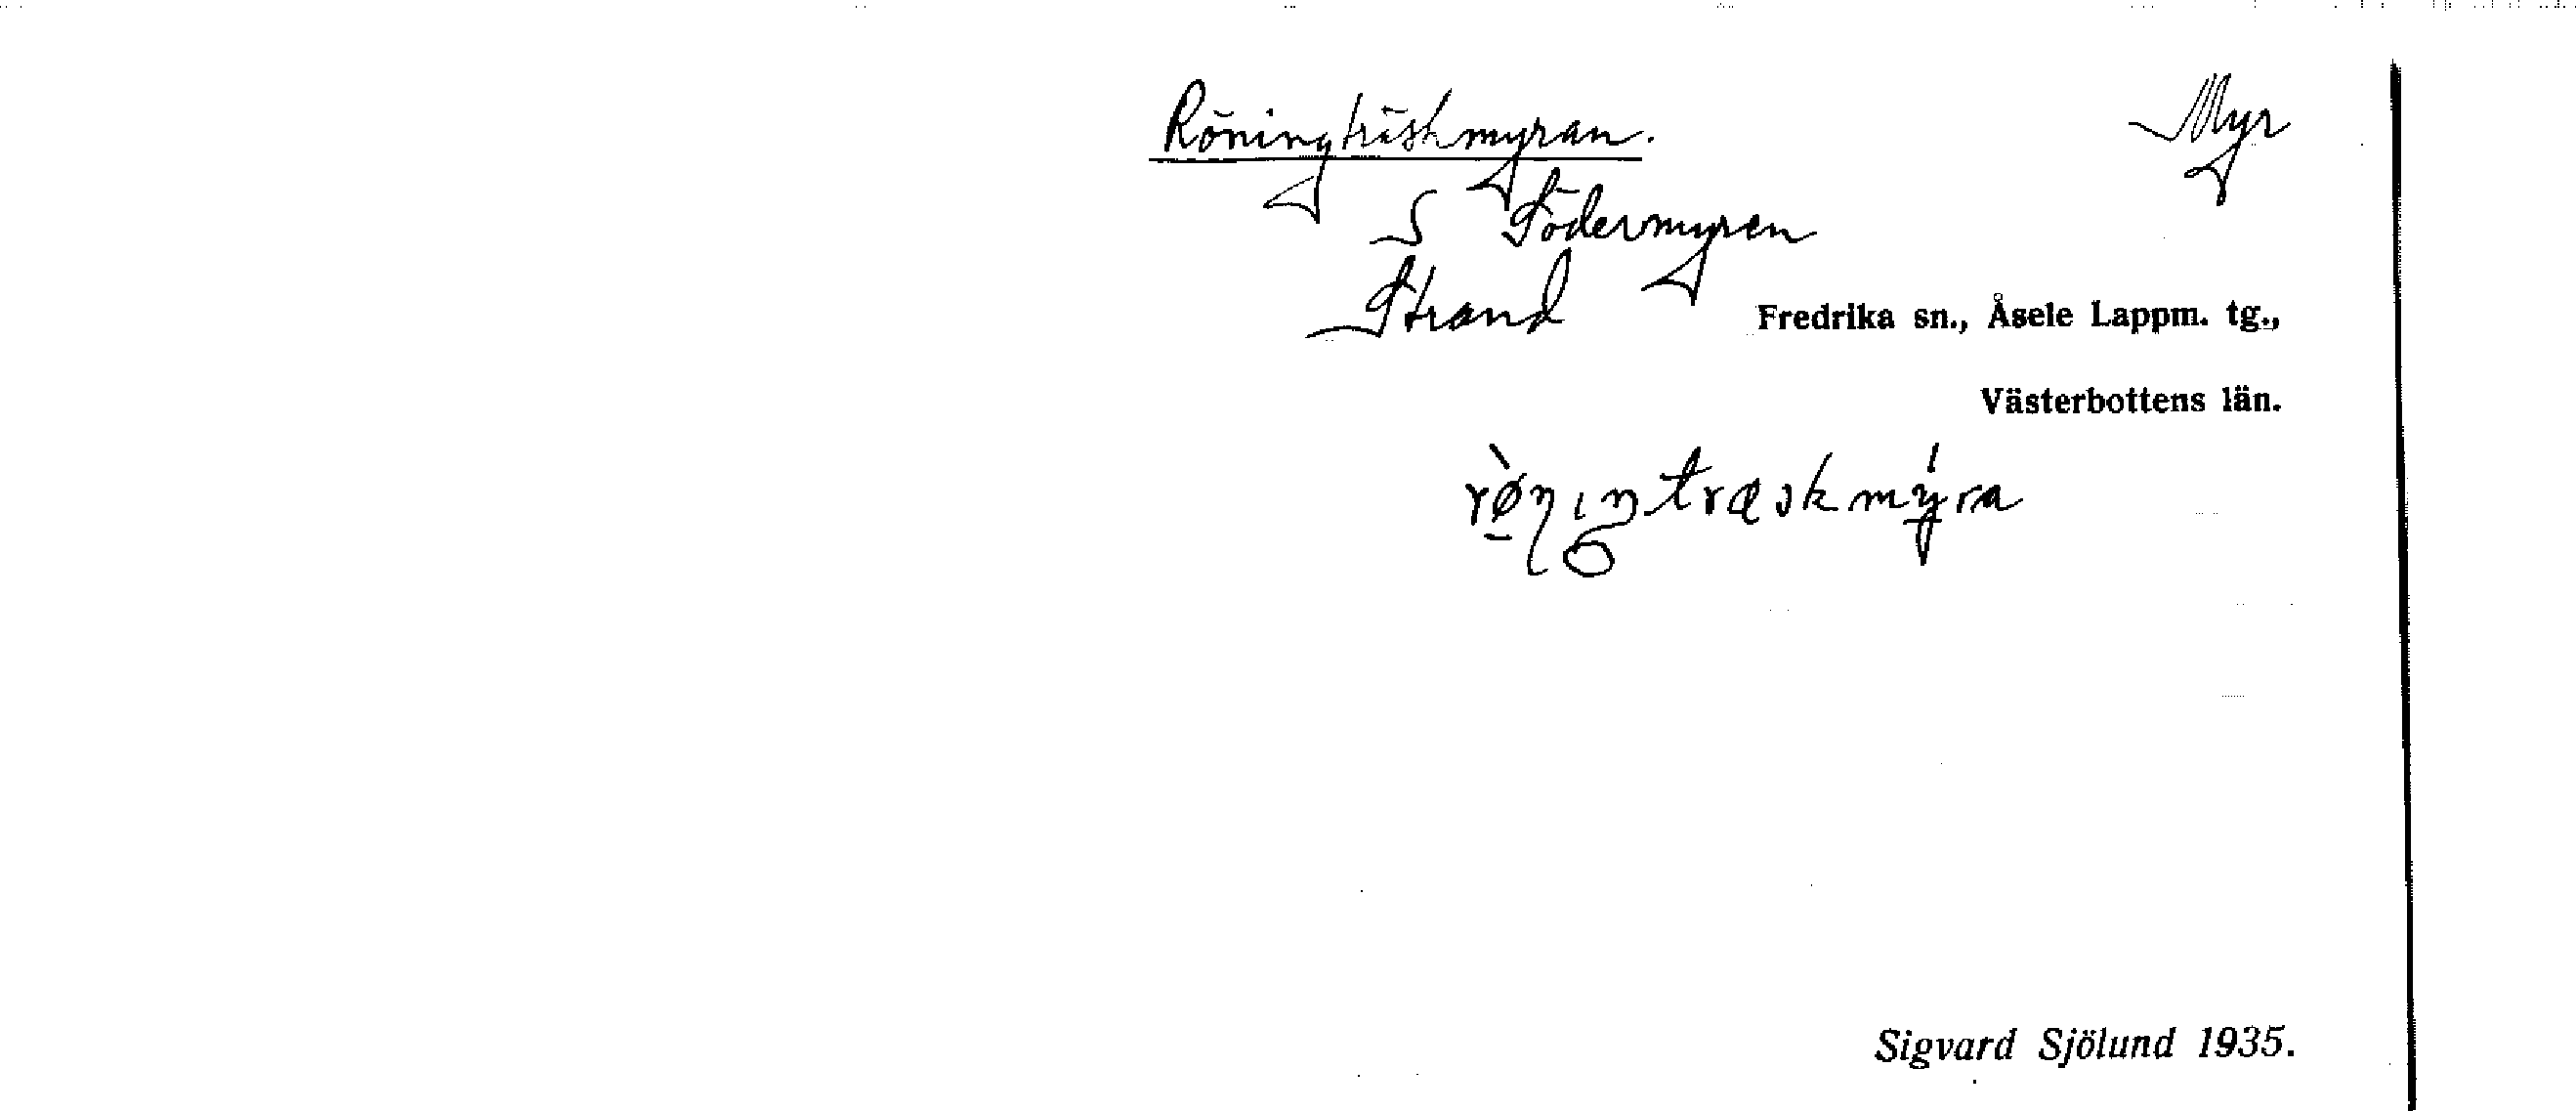 Röningträskmyran. Myr
S Södermyren
Strand
Fredrika sn., Åsele Lappm. tg.,
Västerbottens län.
Sigvard Sjölund 1935.